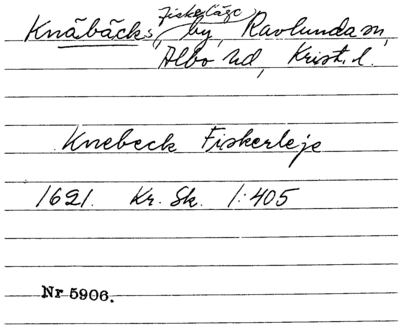 Fiskeläge
Knäbäcks, by, Ravlunda sn,
Albo hd, Krist. l.
Knebeck Fiskerleje
1621. Kr. Sk. 1:405
Nr 5906.